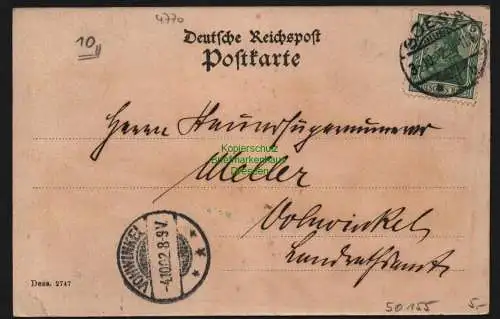 4770
10
Deutsche Reichspost
Postkarte
Herrn
Kopierschutz
Briefmarkenhaus
Dresden
Weller
Vohwinkel
Landrathsamt
VOHWINKEL
-4.10.02.8-9V.
Dess. 2747
50155
5.-